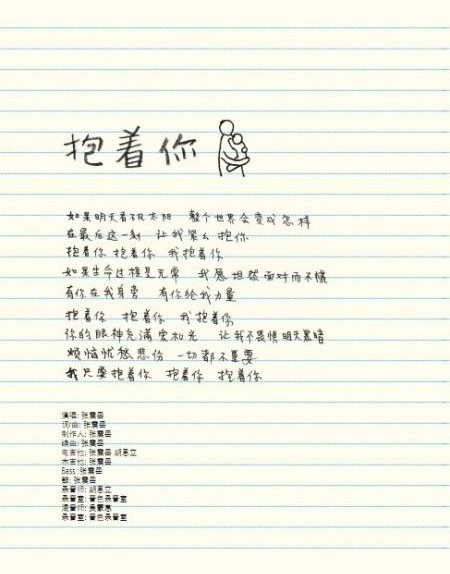 抱着你
如果明天看不见太阳 整个世界会变成怎样
在最后这一刻 让我紧紧抱你
抱着你 抱着你 我抱着你
如果生命过程是无常 我愿坦然面对而不慌
有你在我身旁 有你给我力量
抱着你 抱着你 我抱着你
你的眼神充满爱和光 让我不畏惧明天黑暗
烦恼忧愁悲伤 一切都不重要
我只要抱着你 抱着你 抱着你
演唱: 张震岳
词/曲: 张震岳
制作人: 张震岳
编曲: 张震岳
电吉他: 张震岳 胡惠立
木吉他: 张震岳
Bass :张震岳
鼓: 张震岳
录音师: 胡惠立
录音室: 音色录音室
混音师: 吴蒙惠
录音室: 音色录音室